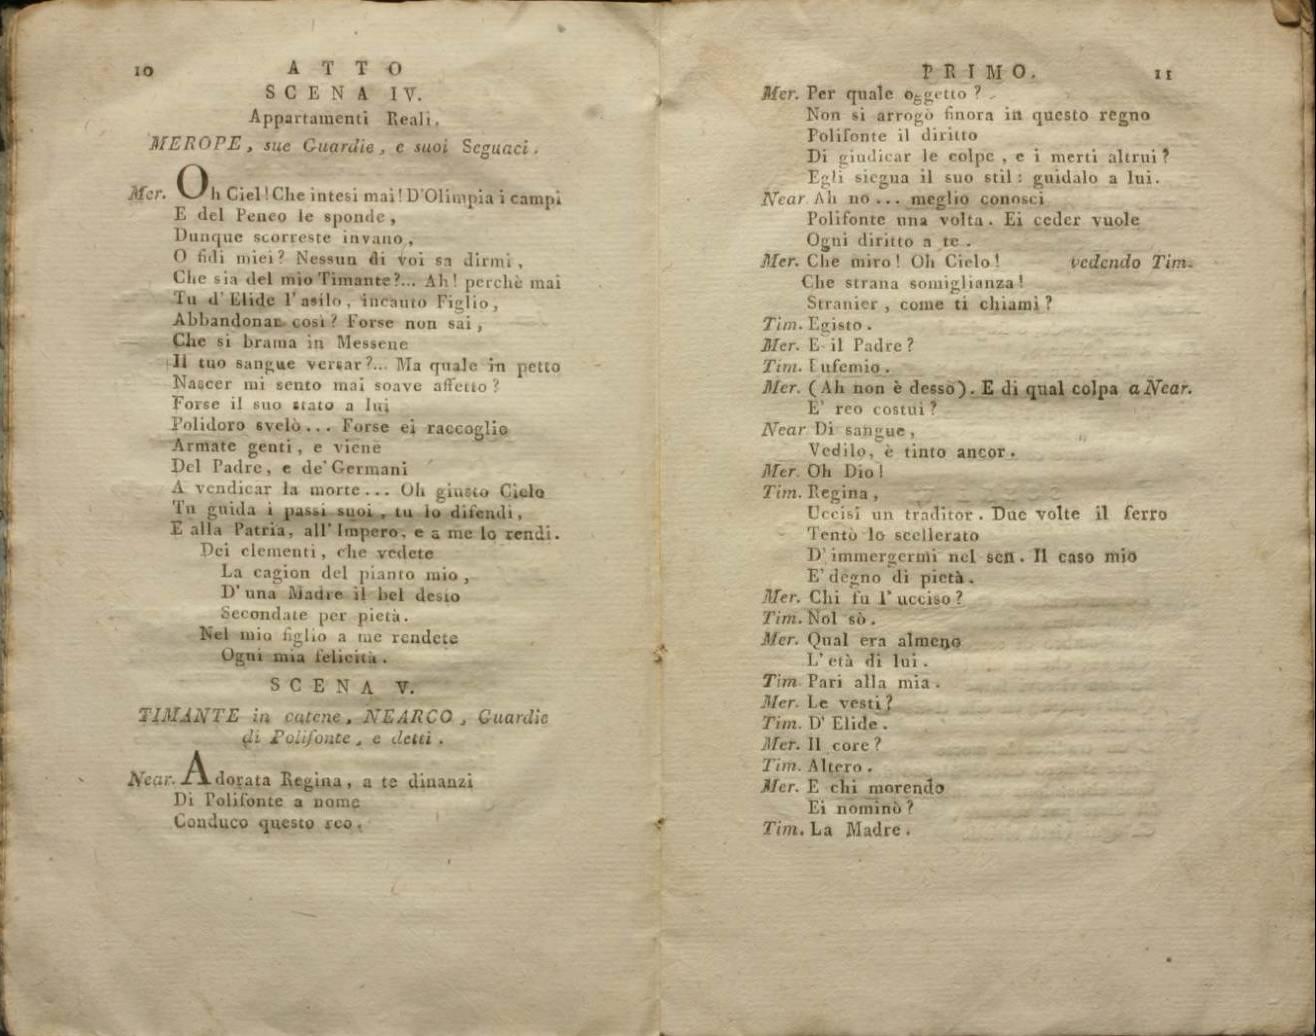 10 ATTO
SCENA IV.
Appartamenti Reali.
MEROPE, sue Guardie, e suoi Seguaci.
Mer. Oh Ciel! Che intesi mai! D'Olimpia i campi
E del Peneo le sponde,
Dunque scorreste invano,
O fidi miei? Nessun di voi sa dirmi,
Che sia del mio Timante?... Ah! perchè mai
Tu d'Elide l'asilo, incauto Figlio,
Abbandonar così? Forse non sai,
Che si brama in Messene
Il tuo sangue versar?... Ma quale in petto
Nascer mi sento mai soave affetto?
Forse il suo stato a lui
Polidoro svelò... Forse ei raccoglie
Armate genti, e viene
Del Padre, e de' Germani
A vendicar la morte... Oh giusto Cielo
Tu guida i passi suoi, tu lo difendi,
E alla Patria, all'Impero, e a me lo rendi.
Dei clementi, che vedete
La cagion del pianto mio,
D'una Madre il bel desio
Secondate per pietà.
Nel mio figlio a me rendete
Ogni mia felicità.
SCENA V.
TIMANTE in catene, NEARCO, Guardie
di Polifonte, e detti.
Near. Adorata Regina, a te dinanzi
Di Polifonte a nome
Conduco questo reo.
PRIMO. 11
Mer. Per quale oggetto?
Non si arrogò finora in questo regno
Polifonte il diritto
Di giudicar le colpe, e i merti altrui?
Egli siegua il suo stil: guidalo a lui.
Near Ah no... meglio conosci
Polifonte una volta. Ei ceder vuole
Ogni diritto a te.
Mer. Che miro! Oh Cielo! vedendo Tim.
Che strana somiglianza!
Stranier, come ti chiami?
Tim. Egisto.
Mer. E il Padre?
Tim. Eufemio.
Mer. (Ah non è desso). E di qual colpa a Near.
E' reo costui?
Near Di sangue,
Vedilo, è tinto ancor.
Mer. Oh Dio!
Tim. Regina,
Uccisi un traditor. Due volte il ferro
Tentò lo scellerato
D'immergermi nel sen. Il caso mio
E' degno di pietà.
Mer. Chi fu l'ucciso?
Tim. Nol sò.
Mer. Qual era almeno
L'età di lui.
Tim. Pari alla mia.
Mer. Le vesti?
Tim. D'Elide.
Mer. Il core?
Tim. Altero.
Mer. E chi morendo
Ei nominò?
Tim. La Madre.